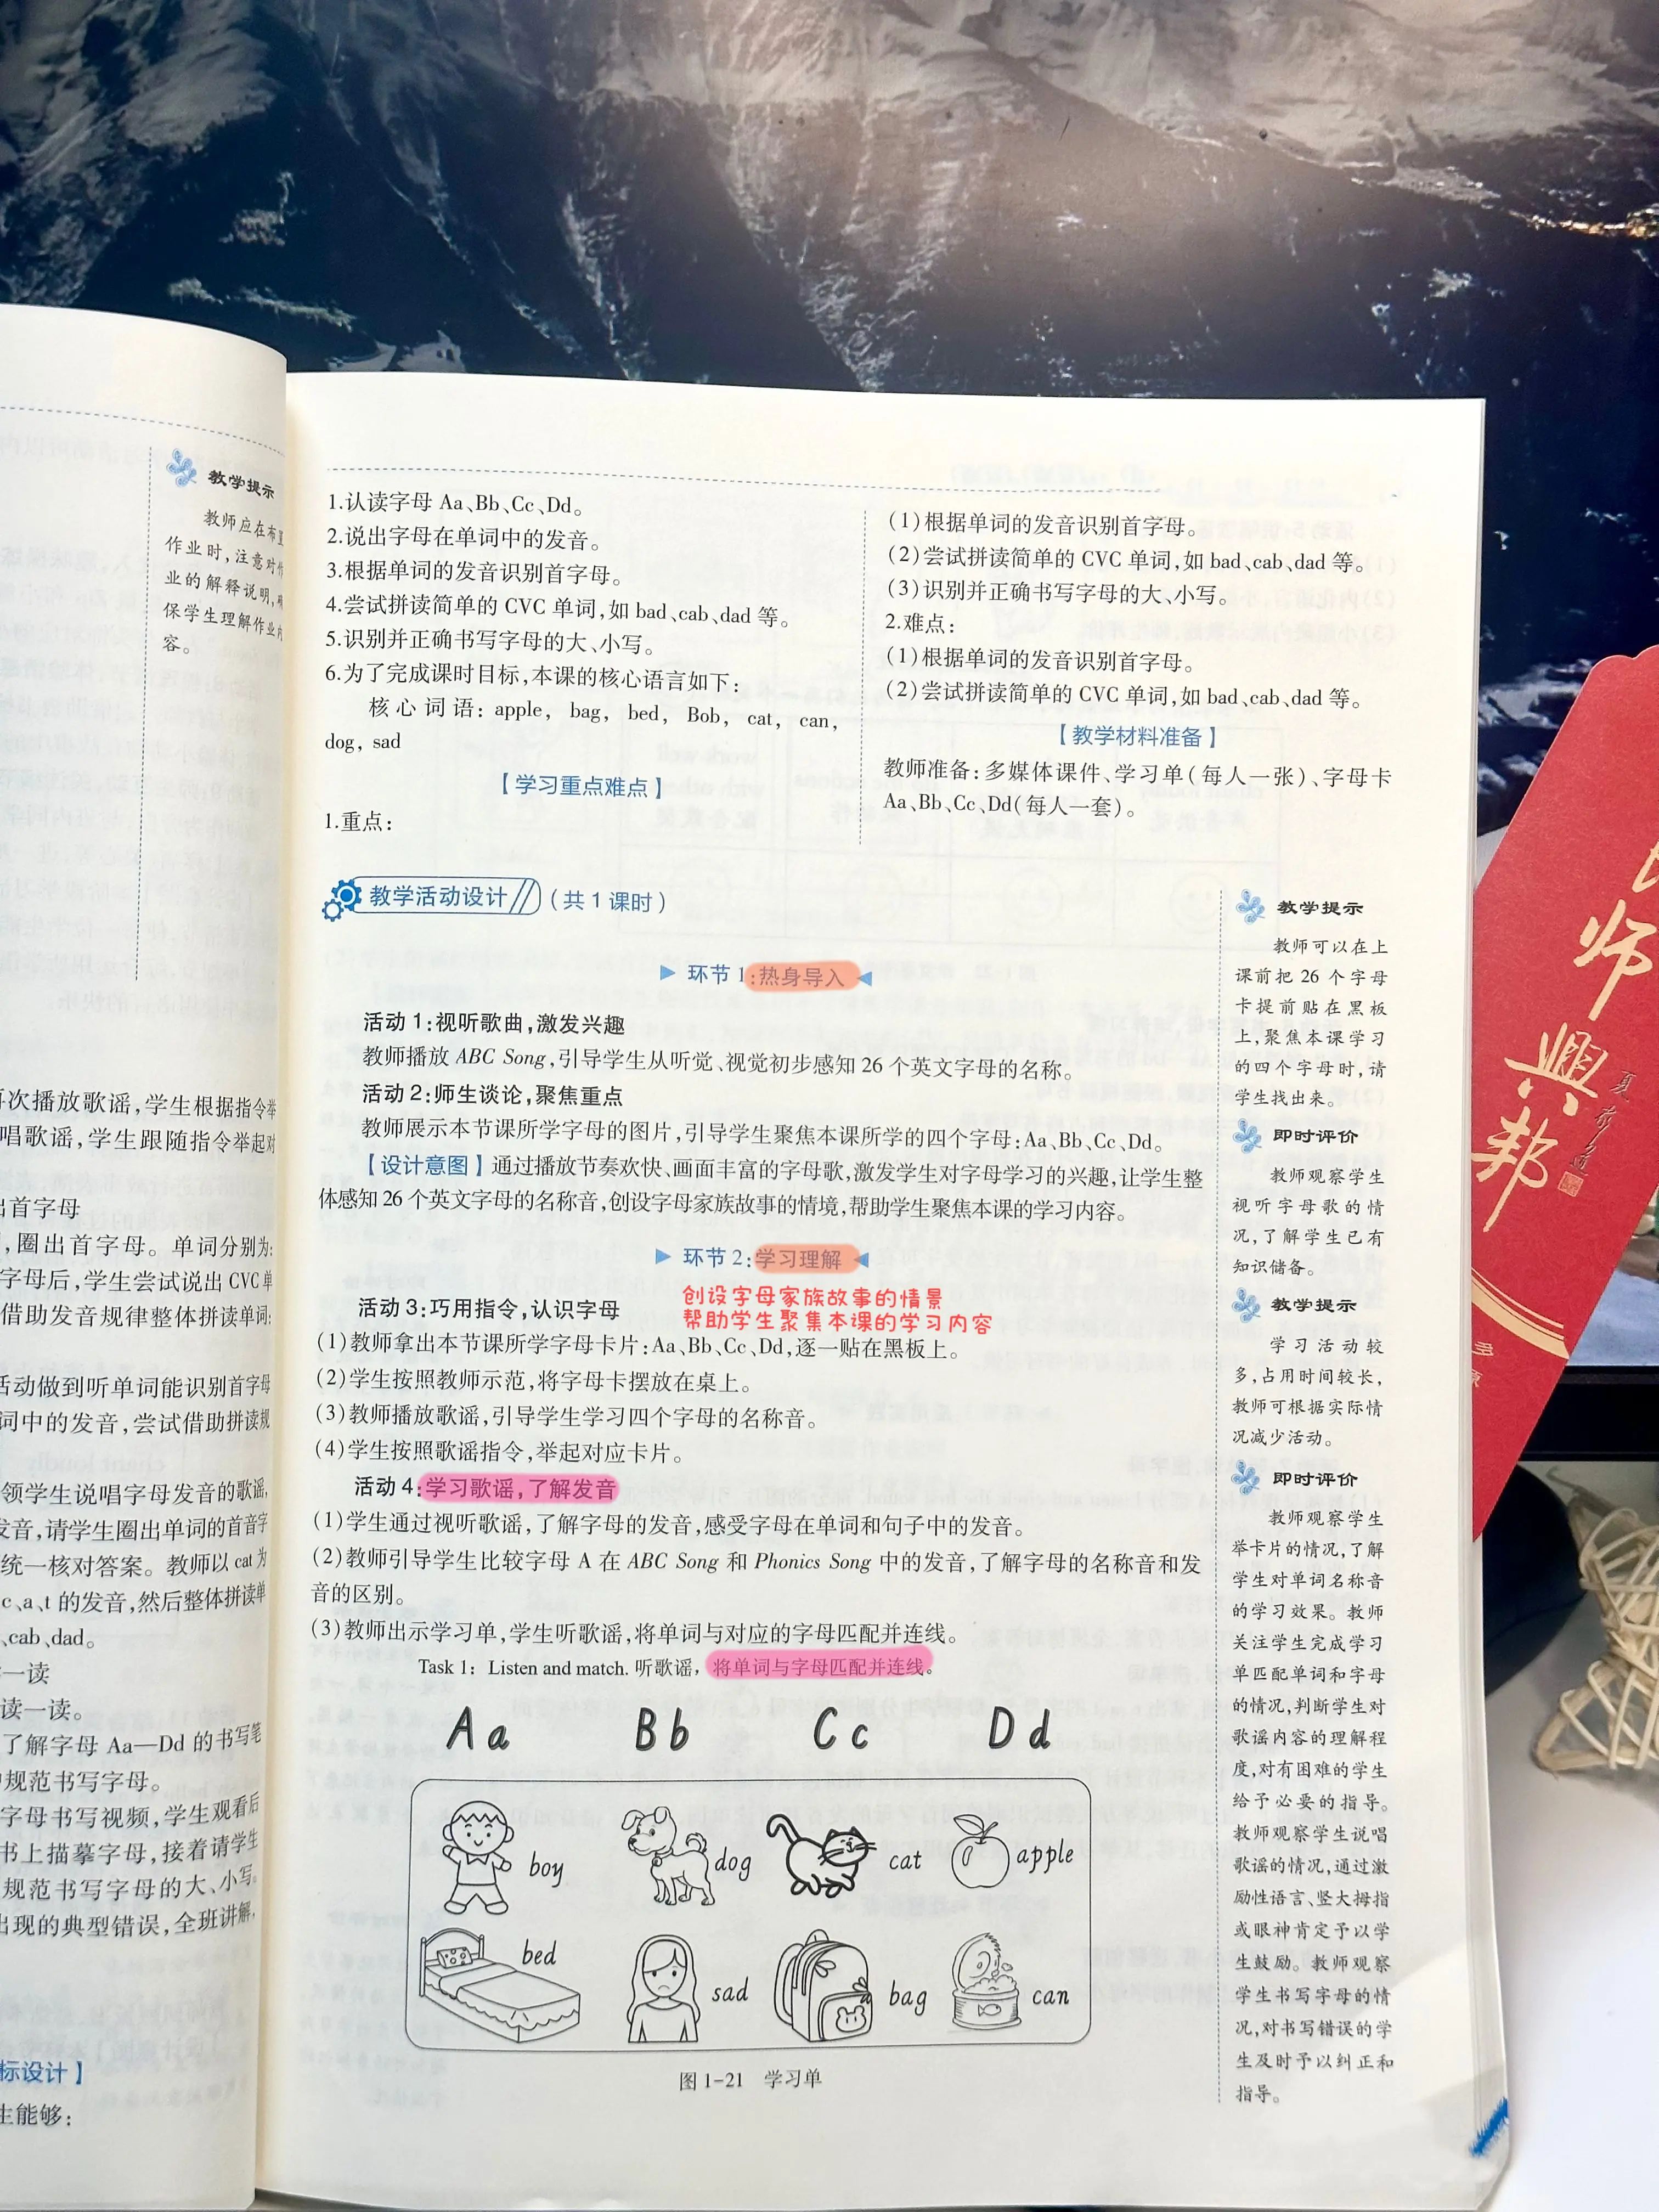 教学提示
教师应在布
作业时，注意对
业的解释说明，
保学生理解作业内
容。
次播放歌谣，学生根据指令举
唱歌谣，学生跟随指令举起对
出首字母
，圈出首字母。单词分别为：
字母后，学生尝试说出 CVC 单
借助发音规律整体拼读单词：
活动做到听单词能识别首字母
词中的发音，尝试借助拼读规
领学生说唱字母发音的歌谣，
发音，请学生圈出单词的首音字
统一核对答案。教师以 cat 为
c、a、t 的发音，然后整体拼读单
、cab、dad。
一读
读一读。
了解字母 Aa—Dd 的书写笔
规范书写字母。
字母书写视频，学生观看后
书上描摹字母，接着请学生
规范书写字母的大、小写。
出现的典型错误，全班讲解，
标设计】
生能够：
1.认读字母 Aa、Bb、Cc、Dd。
2.说出字母在单词中的发音。
3.根据单词的发音识别首字母。
4.尝试拼读简单的 CVC 单词，如 bad、cab、dad 等。
5.识别并正确书写字母的大、小写。
6.为了完成课时目标，本课的核心语言如下：
核心词语：apple， bag， bed， Bob， cat， can，
dog，sad
【学习重点难点】
1.重点：
(1)根据单词的发音识别首字母。
(2)尝试拼读简单的 CVC 单词，如 bad、cab、dad 等。
(3)识别并正确书写字母的大、小写。
2.难点：
(1)根据单词的发音识别首字母。
(2)尝试拼读简单的 CVC 单词，如 bad、cab、dad 等。
【教学材料准备】
教师准备：多媒体课件、学习单(每人一张)、字母卡
Aa、Bb、Cc、Dd(每人一套)。
教学活动设计 (共 1 课时)
环节 1：热身导入
活动 1：视听歌曲，激发兴趣
教师播放 ABC Song，引导学生从听觉、视觉初步感知 26 个英文字母的名称。
活动 2：师生谈论，聚焦重点
教师展示本节课所学字母的图片，引导学生聚焦本课所学的四个字母：Aa、Bb、Cc、Dd。
【设计意图】通过播放节奏欢快、画面丰富的字母歌，激发学生对字母学习的兴趣，让学生整
体感知 26 个英文字母的名称音，创设字母家族故事的情境，帮助学生聚焦本课的学习内容。
环节 2：学习理解
创设字母家族故事的情景
帮助学生聚集本课的学习内容
活动 3：巧用指令，认识字母
(1)教师拿出本节课所学字母卡片：Aa、Bb、Cc、Dd，逐一贴在黑板上。
(2)学生按照教师示范，将字母卡摆放在桌上。
(3)教师播放歌谣，引导学生学习四个字母的名称音。
(4)学生按照歌谣指令，举起对应卡片。
活动 4：学习歌谣，了解发音
(1)学生通过视听歌谣，了解字母的发音，感受字母在单词和句子中的发音。
(2)教师引导学生比较字母 A 在 ABC Song 和 Phonics Song 中的发音，了解字母的名称音和发
音的区别。
(3)教师出示学习单，学生听歌谣，将单词与对应的字母匹配并连线。
Task 1：Listen and match. 听歌谣，将单词与字母匹配并连线。
Aa Bb Cc Dd
boy dog cat apple
bed sad bag can
图 1-21 学习单
教学提示
教师可以在上
课前把 26 个字母
卡提前贴在黑板
上，聚焦本课学习
的四个字母时，请
学生找出来。
即时评价
教师观察学生
视听字母歌的情
况，了解学生已有
知识储备。
教学提示
学习活动较
多，占用时间较长，
教师可根据实际情
况减少活动。
即时评价
教师观察学生
举卡片的情况，了解
学生对单词名称音
的学习效果。教师
关注学生完成学习
单匹配单词和字母
的情况，判断学生对
歌谣内容的理解程
度，对有困难的学生
给予必要的指导。
教师观察学生说唱
歌谣的情况，通过激
励性语言、竖大拇指
或眼神肯定予以学
生鼓励。教师观察
学生书写字母的情
况，对书写错误的学
生及时予以纠正和
指导。
师
興
邦